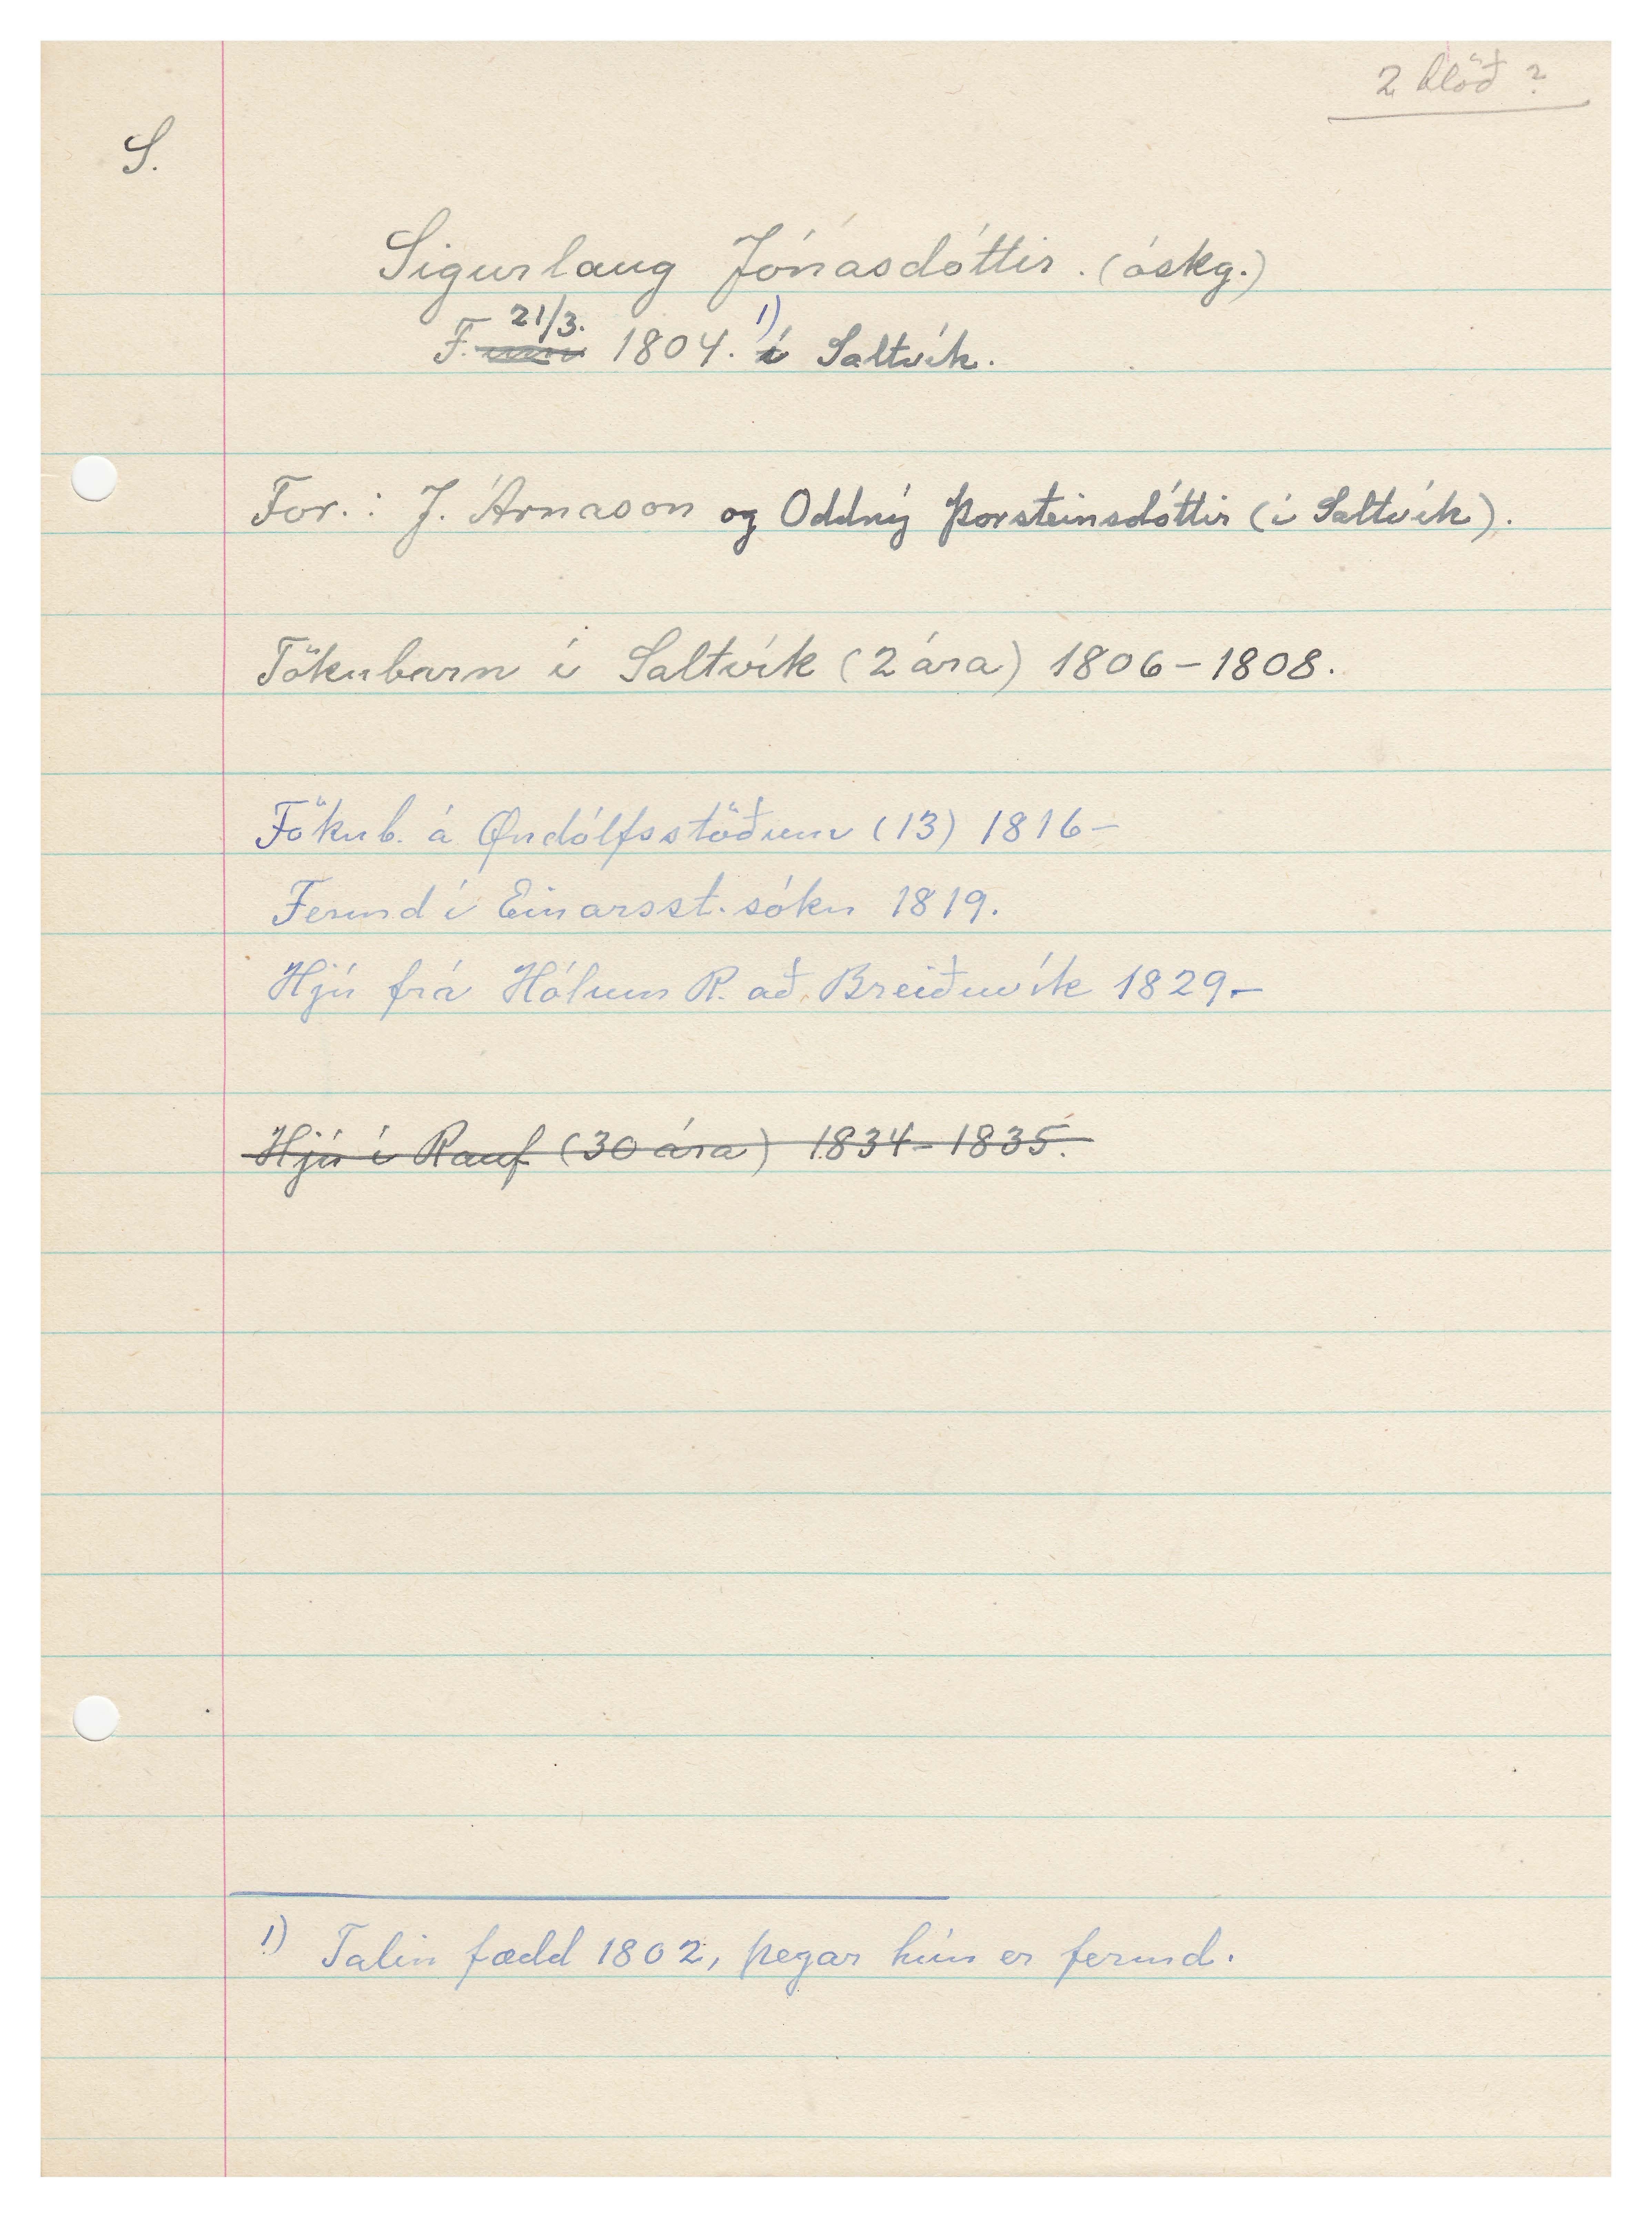 2 blöð?
S.
Sigurlaug Jónasdóttir. (óskg.)
F. 21/3. 1804. 1) í Saltvík.
For.: J. Árnason og Oddný Þorsteinsdóttir (í Saltvík).
Tökubarn í Saltvík (2 ára) 1806-1808.
Tökub. á Öndólfsstöðum (13) 1816-
Fermd í Einarsst. sókn 1819.
Hjú frá Hólum R. að Breiðuvík 1829-
Hjú í Rauf (30 ára) 1834-1835.
1) Talin fædd 1802, þegar hún er fermd.